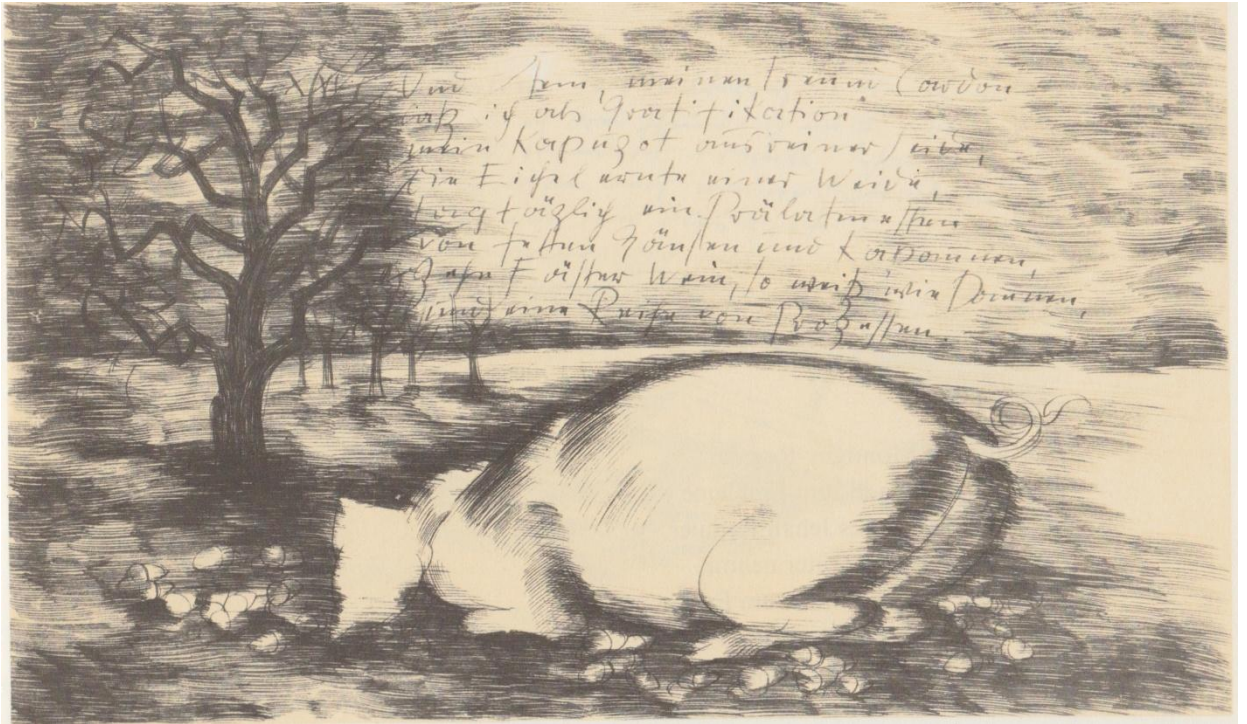 Und Item, meinem Freund Cardon
laß ich als Gratifikation
mein Kapuzot aus reiner Seide,
die Eichelernte einer Weide,
tagtäglich ein Prälatenessen
von fetten Gänsen und Kapaunen,
zehn Fässer Wein, so weiß wie Daunen,
und eine Reihe von Prozessen.